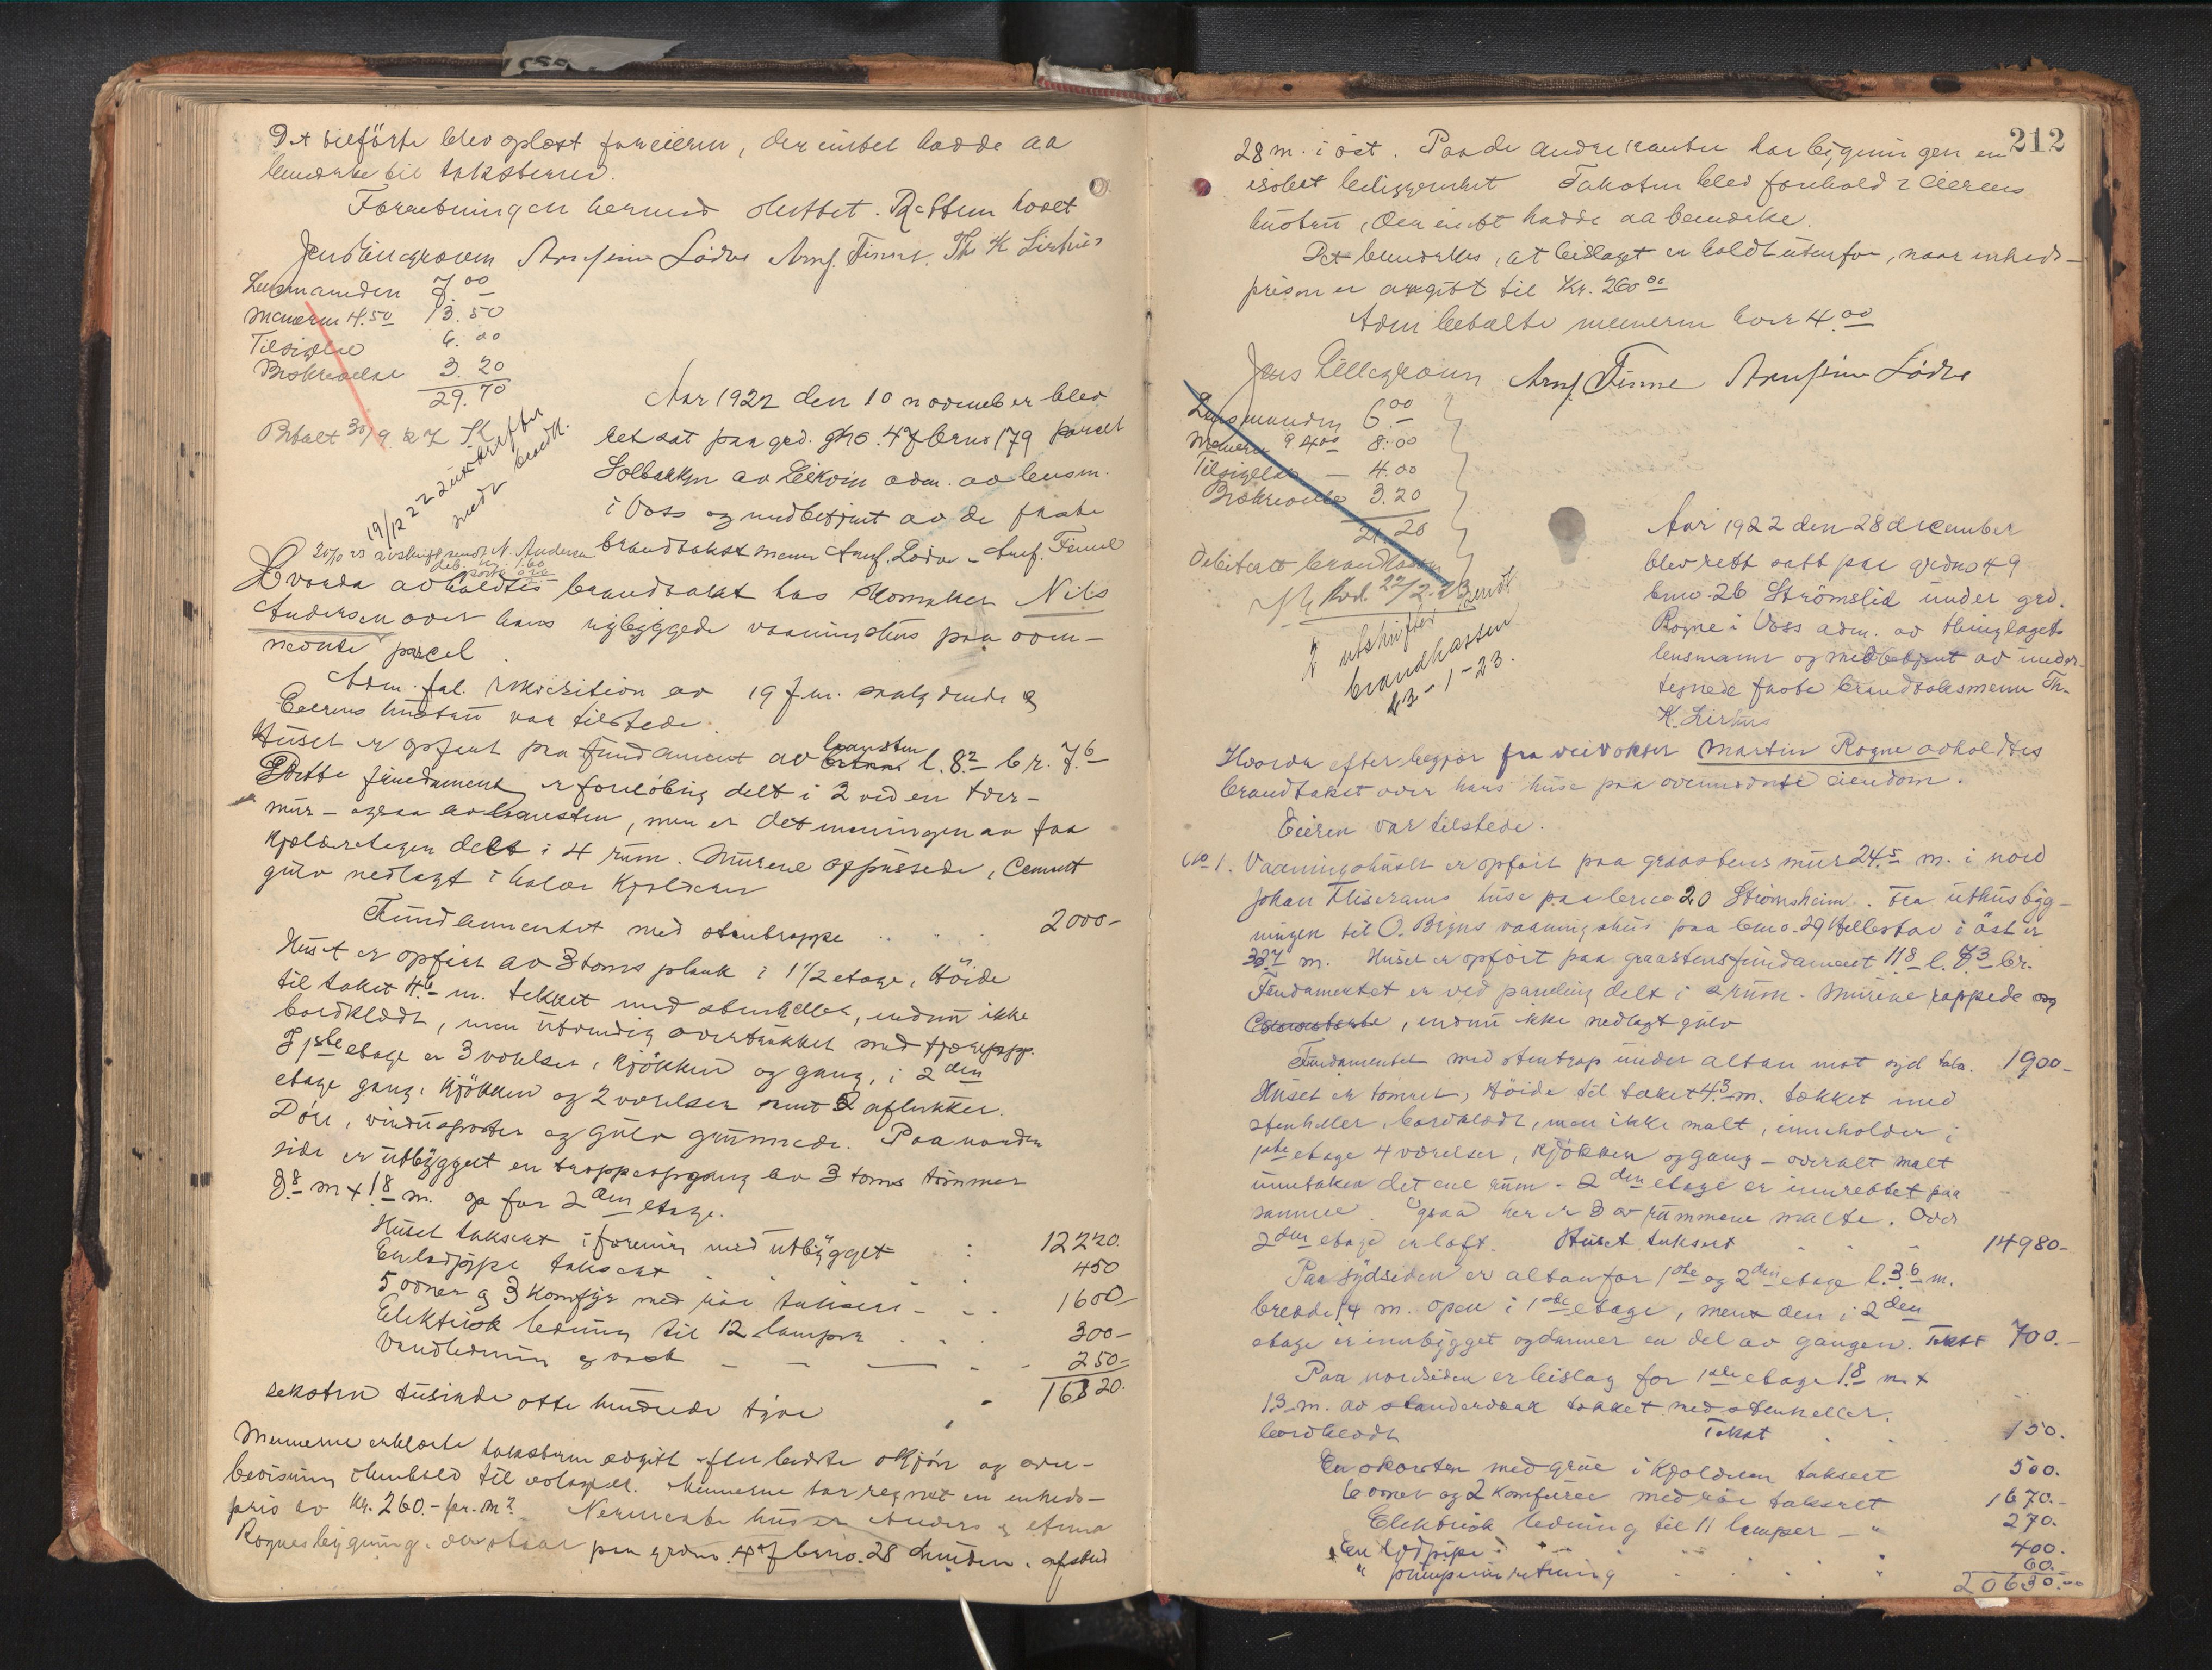 Det tilførte blev oplæst for eieren, der intet hadde aa
bemærke til taksterne.
Forretningen hermed sluttet. Retten hævet
Jens Lillegraven Arnfinn Lødve Arnf. Finne. Th. K. Lirhus
Lensmanden 7.00
Mænnerne 4.50 13.50
Tilsigelse 6.00
Brskrivelse 3.20
29.70
Betalt 30/9 22
19/12 22 utskrifter
sendt brandk.
Aar 1922 den 10 november blev
ret sat paa grd. gno. 47 bruno 179 parcel
Solbakken av Leikvin adm. av lensm.
i Voss og medbetjent av de faste
brandtakstmenn Arnf. Lødve - Arnf. Finne
20/10 23 avskrift sendt N. Andersen
deb. kr. 1.60
porto
Hvorda avholdtes brandtakst hos skomaker Nils
Andersen over hans nybyggede vaaningshus paa oven-
nævnte parcel.
Adm. frl. rekvisition av 19 f.m. saalydende &
Eierens hustru var tilstede.
Huset er opført paa fundament av betong graasten l. 8.2 br. 7.6
Dette fundament er foreløbig delt i 2 ved en tver-
mur - ogsaa av graasten, men er det meningen av faa
kjælderetagen delt i 4 rum. Murene oppussede, cement
gulv nedlagt i halve kjælderen
Fundamentet med stentrappe 2000-
Huset er opført av 3 toms plank i 1 1/2 etage, Høide
til taket 4.6 m. tekket med stenheller, endnu ikke
bordklædt, men utvendig overtrukket med tjærepap.
I 1ste etage er 3 værelser, kjøkken og gang, i 2den
etage gang, kjøkken og 2 værelser samt 2 aflukker.
Døre, vindusposter og gulv grunnede. Paa nordre
side er utbygget en trappeopgang av 3 toms tømmer
3.8 m x 1.8 m. op for 2den etage.
Huset taksert i forening med utbygget 12220.
En lodpipe taksert 450
5 ovner og 3 komfyr med rør taksert 1600-
Elektrisk ledning til 12 lamper 300-
Vandledning og vask 250-
16820.
seksten tusinde otte hundrede tyve
Mennerne erklærte taksterne avgit efter bedste skjøn og over-
bevisning i henhold til reglene. Mennerne har regnet en enheds-
pris av kr. 260.- pr. m2 Nærmeste hus er Anders &
Rognes bygning, der staar paa grdno. 47 bruno. 28 Lunden, afstand
212
28 m. i øst. Paa de andre kanter har bygningen en
isolert beliggenhet. Taksten blev foreholdt Eierens
hustru, der intet hadde aa bemærke.
Det bemærkes, at bislaget er holdt utenfor, naar enheds-
prisen er avgit til kr. 260.00
Adm betalte mennerne hver 4.00
Jens Lillegraven Arnf. Finne Arnfinn Lødve
Lensmanden 6.00
Mennerne á 4.00 8.00
Tilsigelse - 4.00
Brskrivelse 3.20
21.20
Debitert brandkassen
Kvd. 22/2.23
2 utskrifter sendt
brandkassen
23-1-23.
Aar 1922 den 28 december
blev rett satt paa grdno 49
bruno 26 Strömslid under grd.
Rogne i Voss adm. av thinglagets
lensmann og medbetjent av under-
tegnede faste brandtaksmenn Th.
K. Lirhus
Hvorda efter begjær fra veivokter Martin Rogne avholdtes
brandtakst over hans huse paa ovennævnte eiendom.
Eieren var tilstede.
No 1. Vaaningshuset er opført paa graastens mur 24.5 m. i nord
Johan Fliserams huse paa bruno 20 Strømsheim. Fra uthusbyg-
ningen til O. Bryns vaaningshus paa bruno. 29 Hellestav i öst er
32.7 m. Huset er opført paa graastensfundament 11.8 l. 7.3 br.
Fundamentet er ved paneling delt i 2 rum. Murene rappede og
, endnu ikke nedlagt gulv
Fundamentet med stentrap under altan mot syd taks. 1900-
Huset er tømret, Høide til taket 4.3 m. tækket med
stenheller, bordklædt, men ikke malt, inneholder i
1ste etage 4 værelser, kjøkken og gang - overalt malt
unntaken det ene rum - 2den etage er innrettet paa
samme. Ogsaa her er 3 av rummene malte. Over
2den etage er loft. Huset taksert 14980-
Paa sydsiden er altan for 1ste og 2den etage l. 3.6 m.
bredde 1.4 m. open i 1ste etage, mens den i 2den
etage er innbygget og danner en del av gangen. Takst 700.-
Paa nordsiden er bislag for 1ste etage 1.8 m x
1.3 m. av standerværk tækket med stenheller.
bordklædt Takst 150.
En skorsten med grue i kjælderen taksert 500.
6 ovner og 2 komfurer med rør taksert 1670.-
Elektrisk ledning til 11 lamper - " 270.
En lodpipe 400.
" pumpeinretning " 60.
20630.-